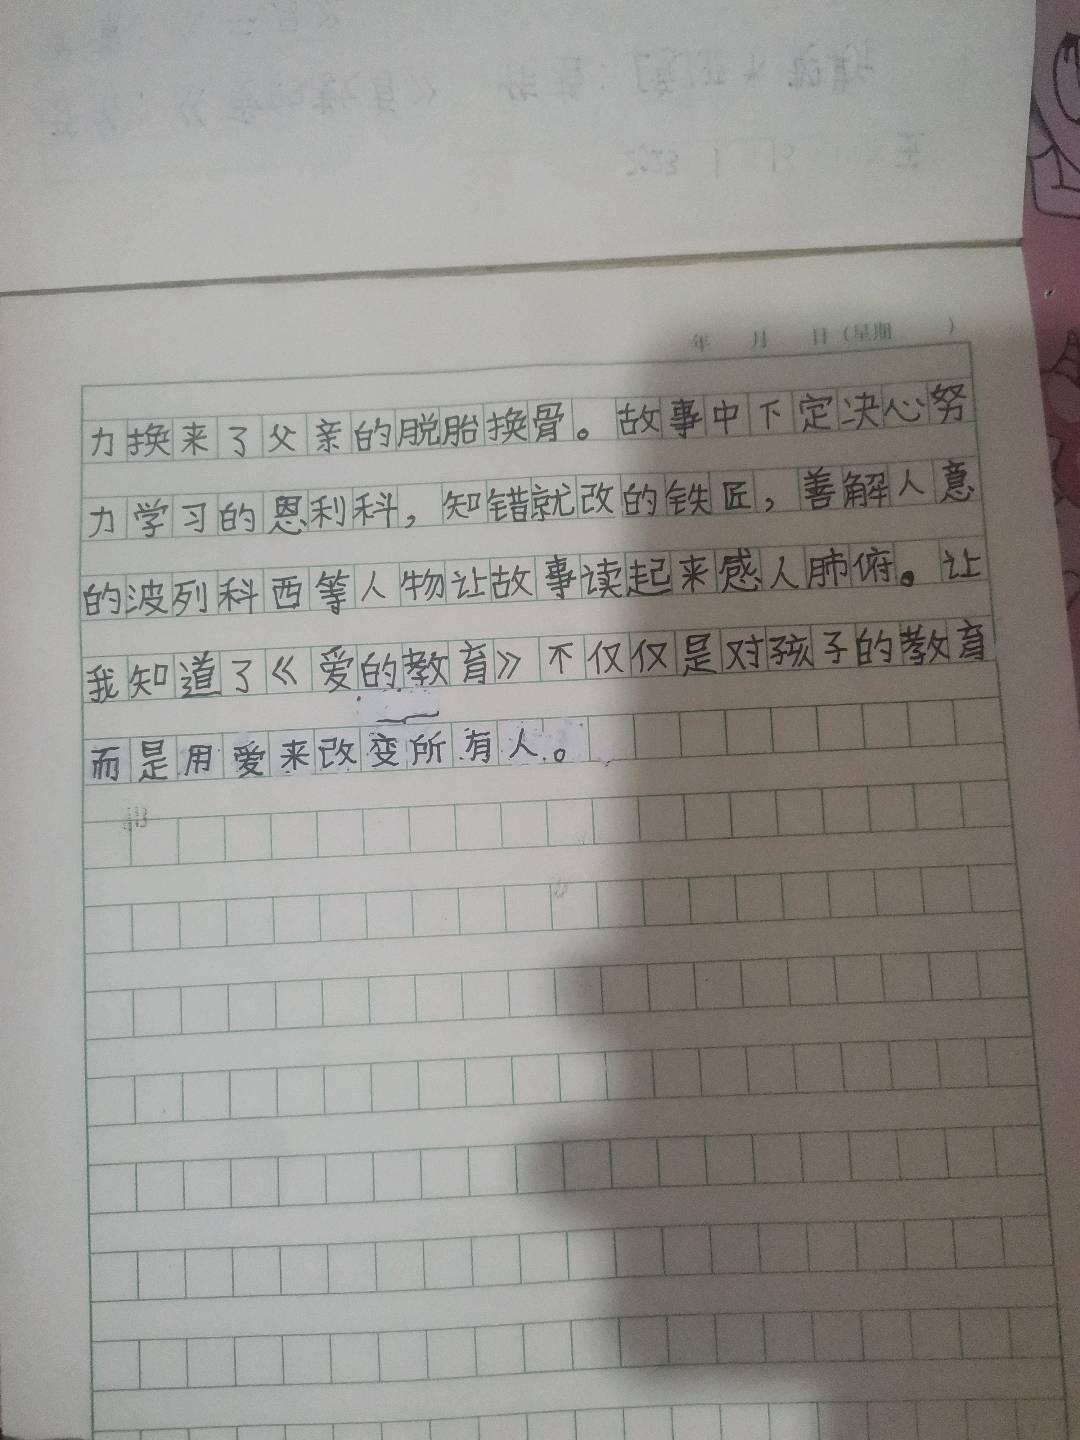 年 月 日（星期 ）
力换来了父亲的脱胎换骨。故事中下定决心努
力学习的恩利科，知错就改的铁匠，善解人意
的波列科西等人物让故事读起来感人肺俯。让
我知道了《爱的教育》不仅仅是对孩子的教育
而是用爱来改变所有人。